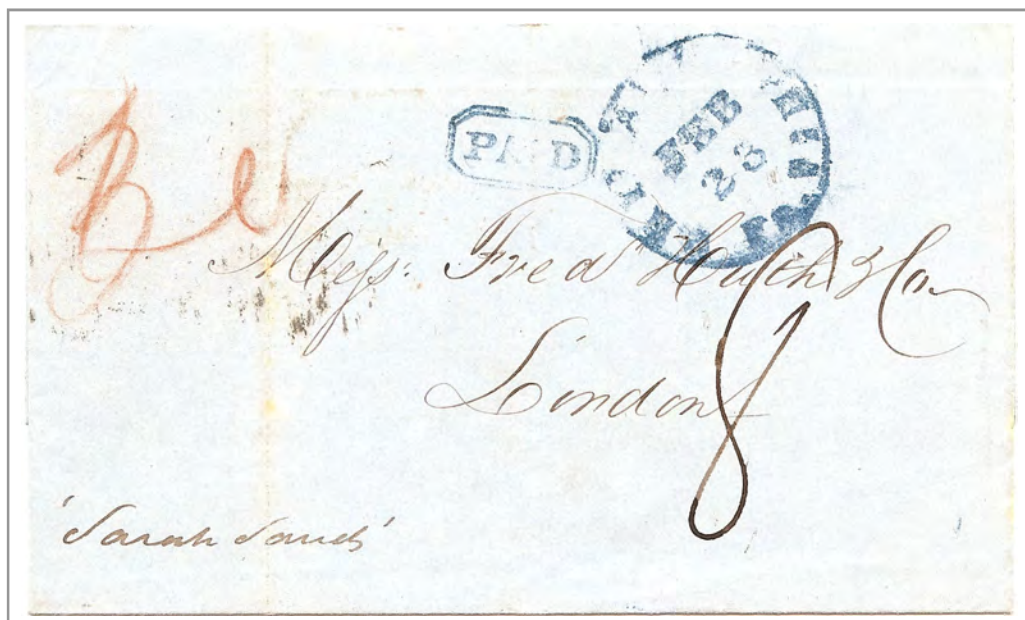 PAID
FEB
23
Mess: Fred Huth & Co
London
8
'Sarah Sands'